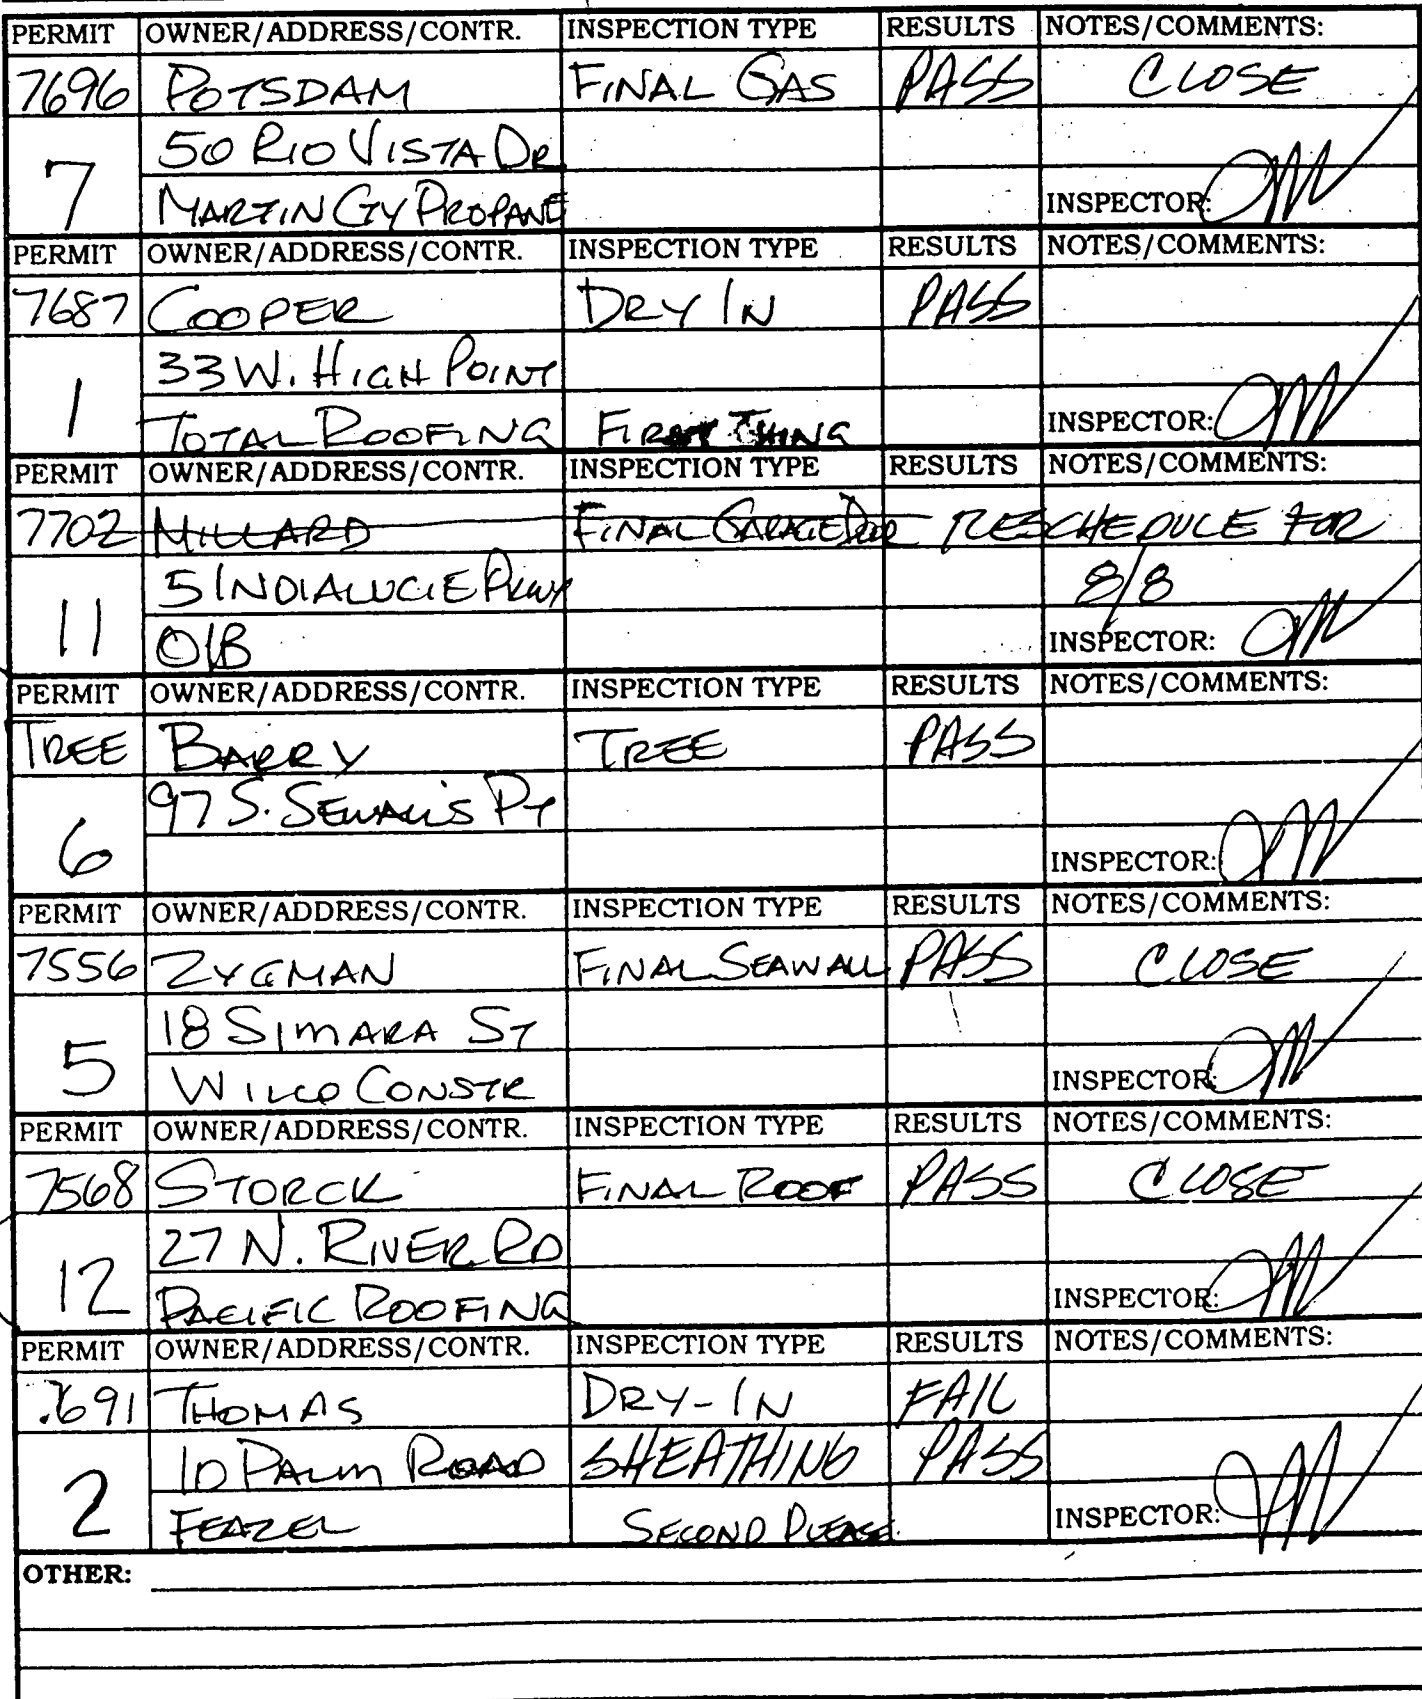 PERMIT OWNER/ADDRESS/CONTR. INSPECTION TYPE RESULTS NOTES/COMMENTS:
7696 POTSDAM FINAL GAS PASS CLOSE
7 50 RIO VISTA DR
MARTIN CTY PROPANE INSPECTOR:
PERMIT OWNER/ADDRESS/CONTR. INSPECTION TYPE RESULTS NOTES/COMMENTS:
7687 COOPER DRY IN PASS
1 33 W. HIGH POINT
TOTAL ROOFING FIRST THING INSPECTOR:
PERMIT OWNER/ADDRESS/CONTR. INSPECTION TYPE RESULTS NOTES/COMMENTS:
7702 MILLARD FINAL GARAGE DOOR RESCHEDULE FOR
11 5 INDIALUCIE PKWY 8/8
O/B INSPECTOR:
PERMIT OWNER/ADDRESS/CONTR. INSPECTION TYPE RESULTS NOTES/COMMENTS:
TREE BARRY TREE PASS
6 97 S. SEWALL'S PT
INSPECTOR:
PERMIT OWNER/ADDRESS/CONTR. INSPECTION TYPE RESULTS NOTES/COMMENTS:
7556 ZYGMAN FINAL SEAWALL PASS CLOSE
5 18 SIMARA ST
WILCO CONSTR INSPECTOR:
PERMIT OWNER/ADDRESS/CONTR. INSPECTION TYPE RESULTS NOTES/COMMENTS:
7568 STORCK FINAL ROOF PASS CLOSE
12 27 N. RIVER RD
PACIFIC ROOFING INSPECTOR:
PERMIT OWNER/ADDRESS/CONTR. INSPECTION TYPE RESULTS NOTES/COMMENTS:
7691 THOMAS DRY-IN FAIL
2 10 PALM ROAD SHEATHING PASS
FEAZEL SECOND PLEASE. INSPECTOR:
OTHER: